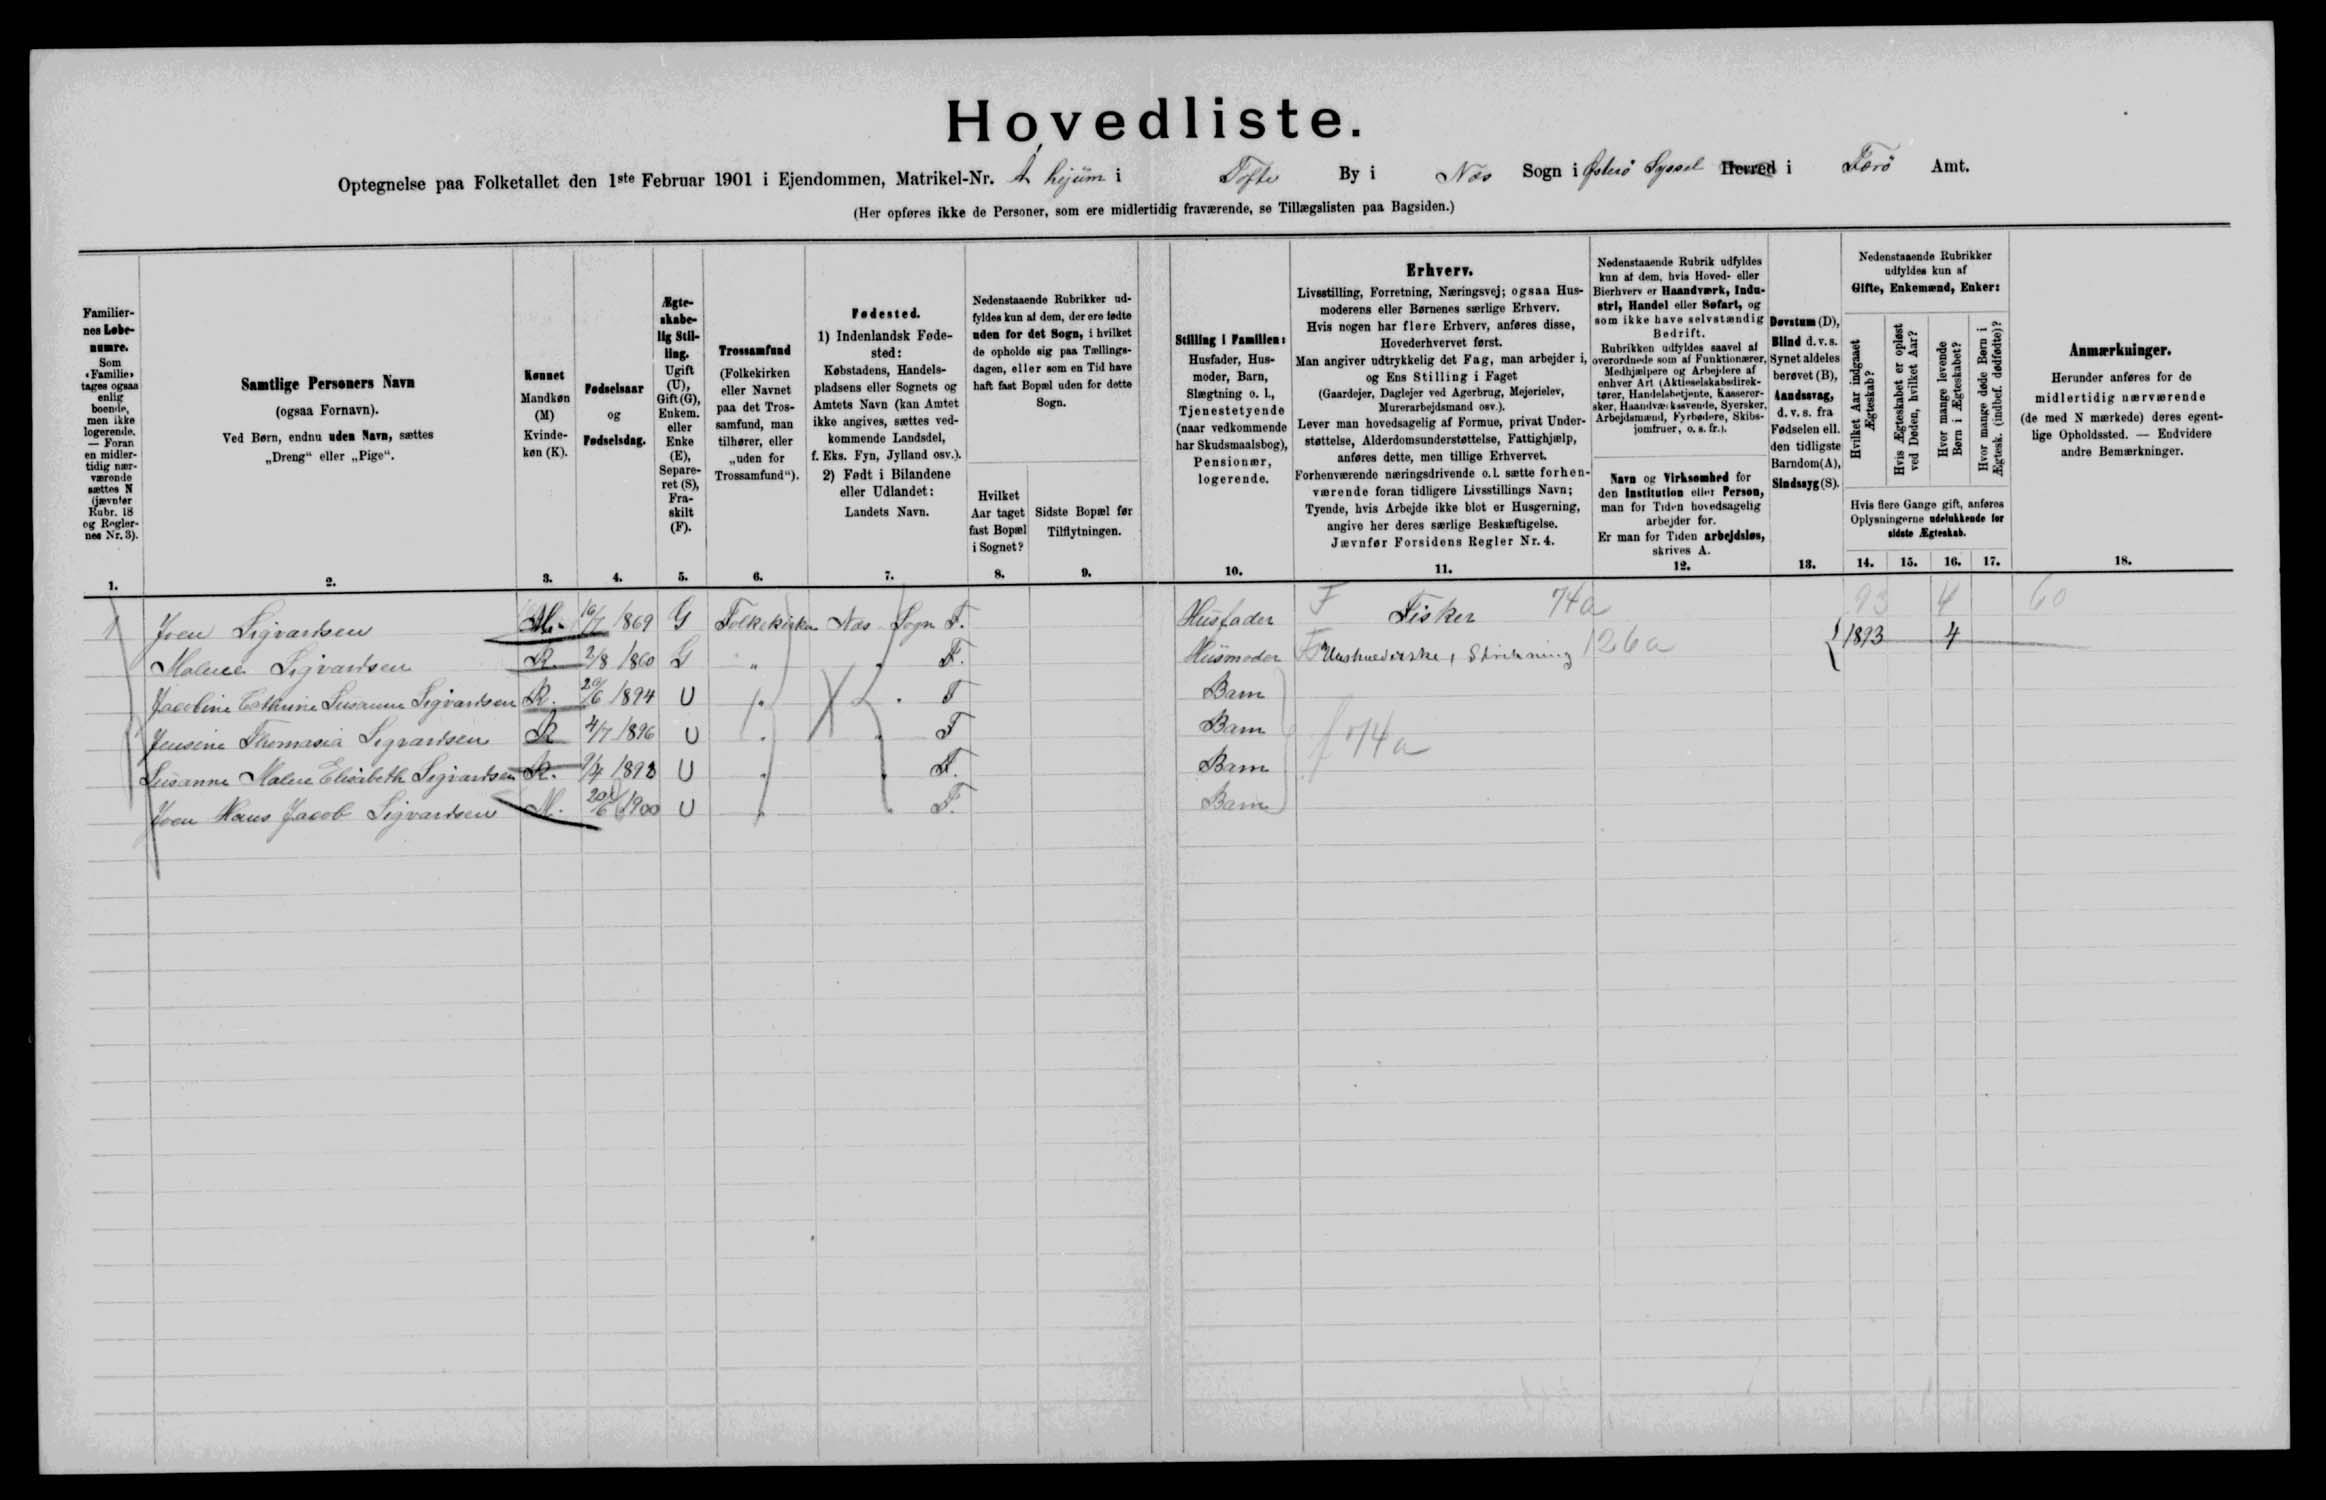 Hovedliste.
Optegnelse paa Folketallet den 1ste Februar 1901 i Ejendommen, Matrikel-Nr. Á hejüm i Tofte By i Næs Sogn i Østerø Syssel Herred i Færø Amt.
(Her opføres ikke de Personer, som ere midlertidig fraværende, se Tillægslisten paa Bagsiden.)
Familiernes Løbenumre. Som «Familie» tages ogsaa enlig boende, men ikke logerende. — Foran en midlertidig nærværende sættes N (jævnfør Rubr. 18 og Reglernes Nr. 3).
Samtlige Personers Navn
(ogsaa Fornavn).
Ved Børn, endnu uden Navn, sættes
„Dreng“ eller „Pige“.
Kønnet
Mandkøn (M)
Kvindekøn (K).
Fødselsaar
og
Fødselsdag.
Ægteskabelig Stilling. Ugift (U), Gift (G), Enkem. eller Enke (E), Separeret (S), Fraskilt (F).
Trossamfund
(Folkekirken eller Navnet paa det Trossamfund, man tilhører, eller „uden for Trossamfund“).
Fødested.
1) Indenlandsk Fødested:
Købstadens, Handelspladsens eller Sognets og Amtets Navn (kan Amtet ikke angives, sættes vedkommende Landsdel, f. Eks. Fyn, Jylland osv.).
2) Født i Bilandene eller Udlandet:
Landets Navn.
Nedenstaaende Rubrikker udfyldes kun af dem, der ere fødte uden for det Sogn, i hvilket de opholde sig paa Tællingsdagen, eller som en Tid have haft fast Bopæl uden for dette Sogn.
Hvilket Aar taget fast Bopæl i Sognet?
Sidste Bopæl før Tilflytningen.
Stilling i Familien:
Husfader, Husmoder, Barn, Slægtning o. l., Tjenestetyende (naar vedkommende har Skudsmaalsbog), Pensionær, logerende.
Erhverv.
Livsstilling, Forretning, Næringsvej; ogsaa Husmoderens eller Børnenes særlige Erhverv.
Hvis nogen har flere Erhverv, anføres disse, Hovederhvervet først.
Man angiver udtrykkelig det Fag, man arbejder i, og Ens Stilling i Faget
(Gaardejer, Daglejer ved Agerbrug, Mejerielev, Murerarbejdsmand osv.).
Lever man hovedsagelig af Formue, privat Understøttelse, Alderdomsunderstøttelse, Fattighjælp, anføres dette, men tillige Erhvervet.
Forhenværende næringsdrivende o. l. sætte forhenværende foran tidligere Livsstillings Navn;
Tyende, hvis Arbejde ikke blot er Husgerning, angive her deres særlige Beskæftigelse.
Jævnfør Forsidens Regler Nr. 4.
Nedenstaaende Rubrik udfyldes kun af dem, hvis Hoved- eller Bierhverv er Haandværk, Industri, Handel eller Søfart, og som ikke have selvstændig Bedrift.
Rubrikken udfyldes saavel af overordnede som af Funktionærer, Medhjælpere og Arbejdere af enhver Art (Aktieselskabsdirektører, Handelsbetjente, Kasserersker, Haandværkssvende, Syersker, Arbejdsmænd, Fyrbødere, Skibsjomfruer, o. s. fr.).
Navn og Virksomhed for den Institution eller Person, man for Tiden hovedsagelig arbejder for.
Er man for Tiden arbejdsløs, skrives A.
Døvstum (D), Blind d. v. s. Synet aldeles berøvet (B), Aandssvag, d. v. s. fra Fødselen ell. den tidligste Barndom (A), Sindssyg (S).
Nedenstaaende Rubrikker udfyldes kun af
Gifte, Enkemænd, Enker:
Hvilket Aar indgaaet Ægteskab?
Hvis Ægteskabet er opløst ved Døden, hvilket Aar?
Hvor mange levende Børn i Ægteskabet?
Hvor mange døde Børn i Ægtesk. (indbef. dødfødte)?
Hvis flere Gange gift, anføres Oplysningerne udelukkende for sidste Ægteskab.
Anmærkninger.
Herunder anføres for de midlertidig nærværende (de med N mærkede) deres egentlige Opholdssted. — Endvidere andre Bemærkninger.
1. 2. 3. 4. 5. 6. 7. 8. 9. 10. 11. 12. 13. 14. 15. 16. 17. 18.
1 Joen Sigvardsen M. 1869 G Folkekirken Næs Sogn F. Husfader F Fisker 74a 93 4 60
Malene Sigvardsen K. 2/8 1860 G " " F. Husmoder Uusholderske, Strikning 126a 1893 4
Jacobine Cathrine Susanne Sigvardsen K. 29/6 1894 U " " F Barn
Jensine Thomasia Sigvardsen K 4/7 1896 U " " F Barn f 74a
Susanne Malene Elisabeth Sigvardsen K. 9/4 1898 U " " F. Barn
Joen Hans Jacob Sigvardsen M. 20/6 1900 U " " F. Barn